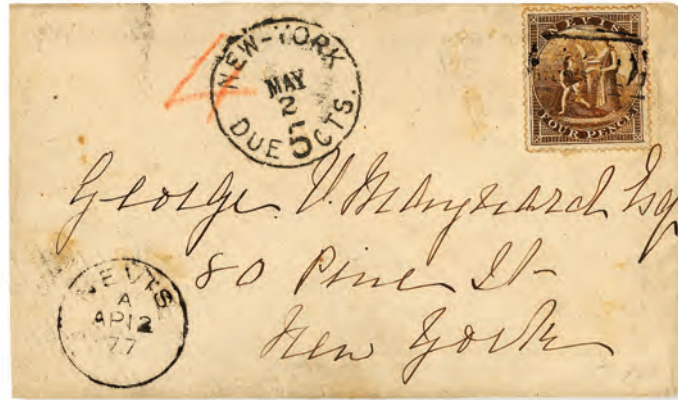 4
NEW-YORK
MAY
2
DUE 5 CTS.
NEVIS
FOUR PENCE
George V. Maynard Esq
80 Pine St-
New York
NEVIS
A
AP12
77